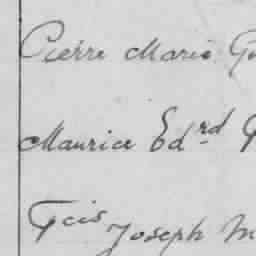 Pierre Marie
Maurice Edrd
Fcis Joseph